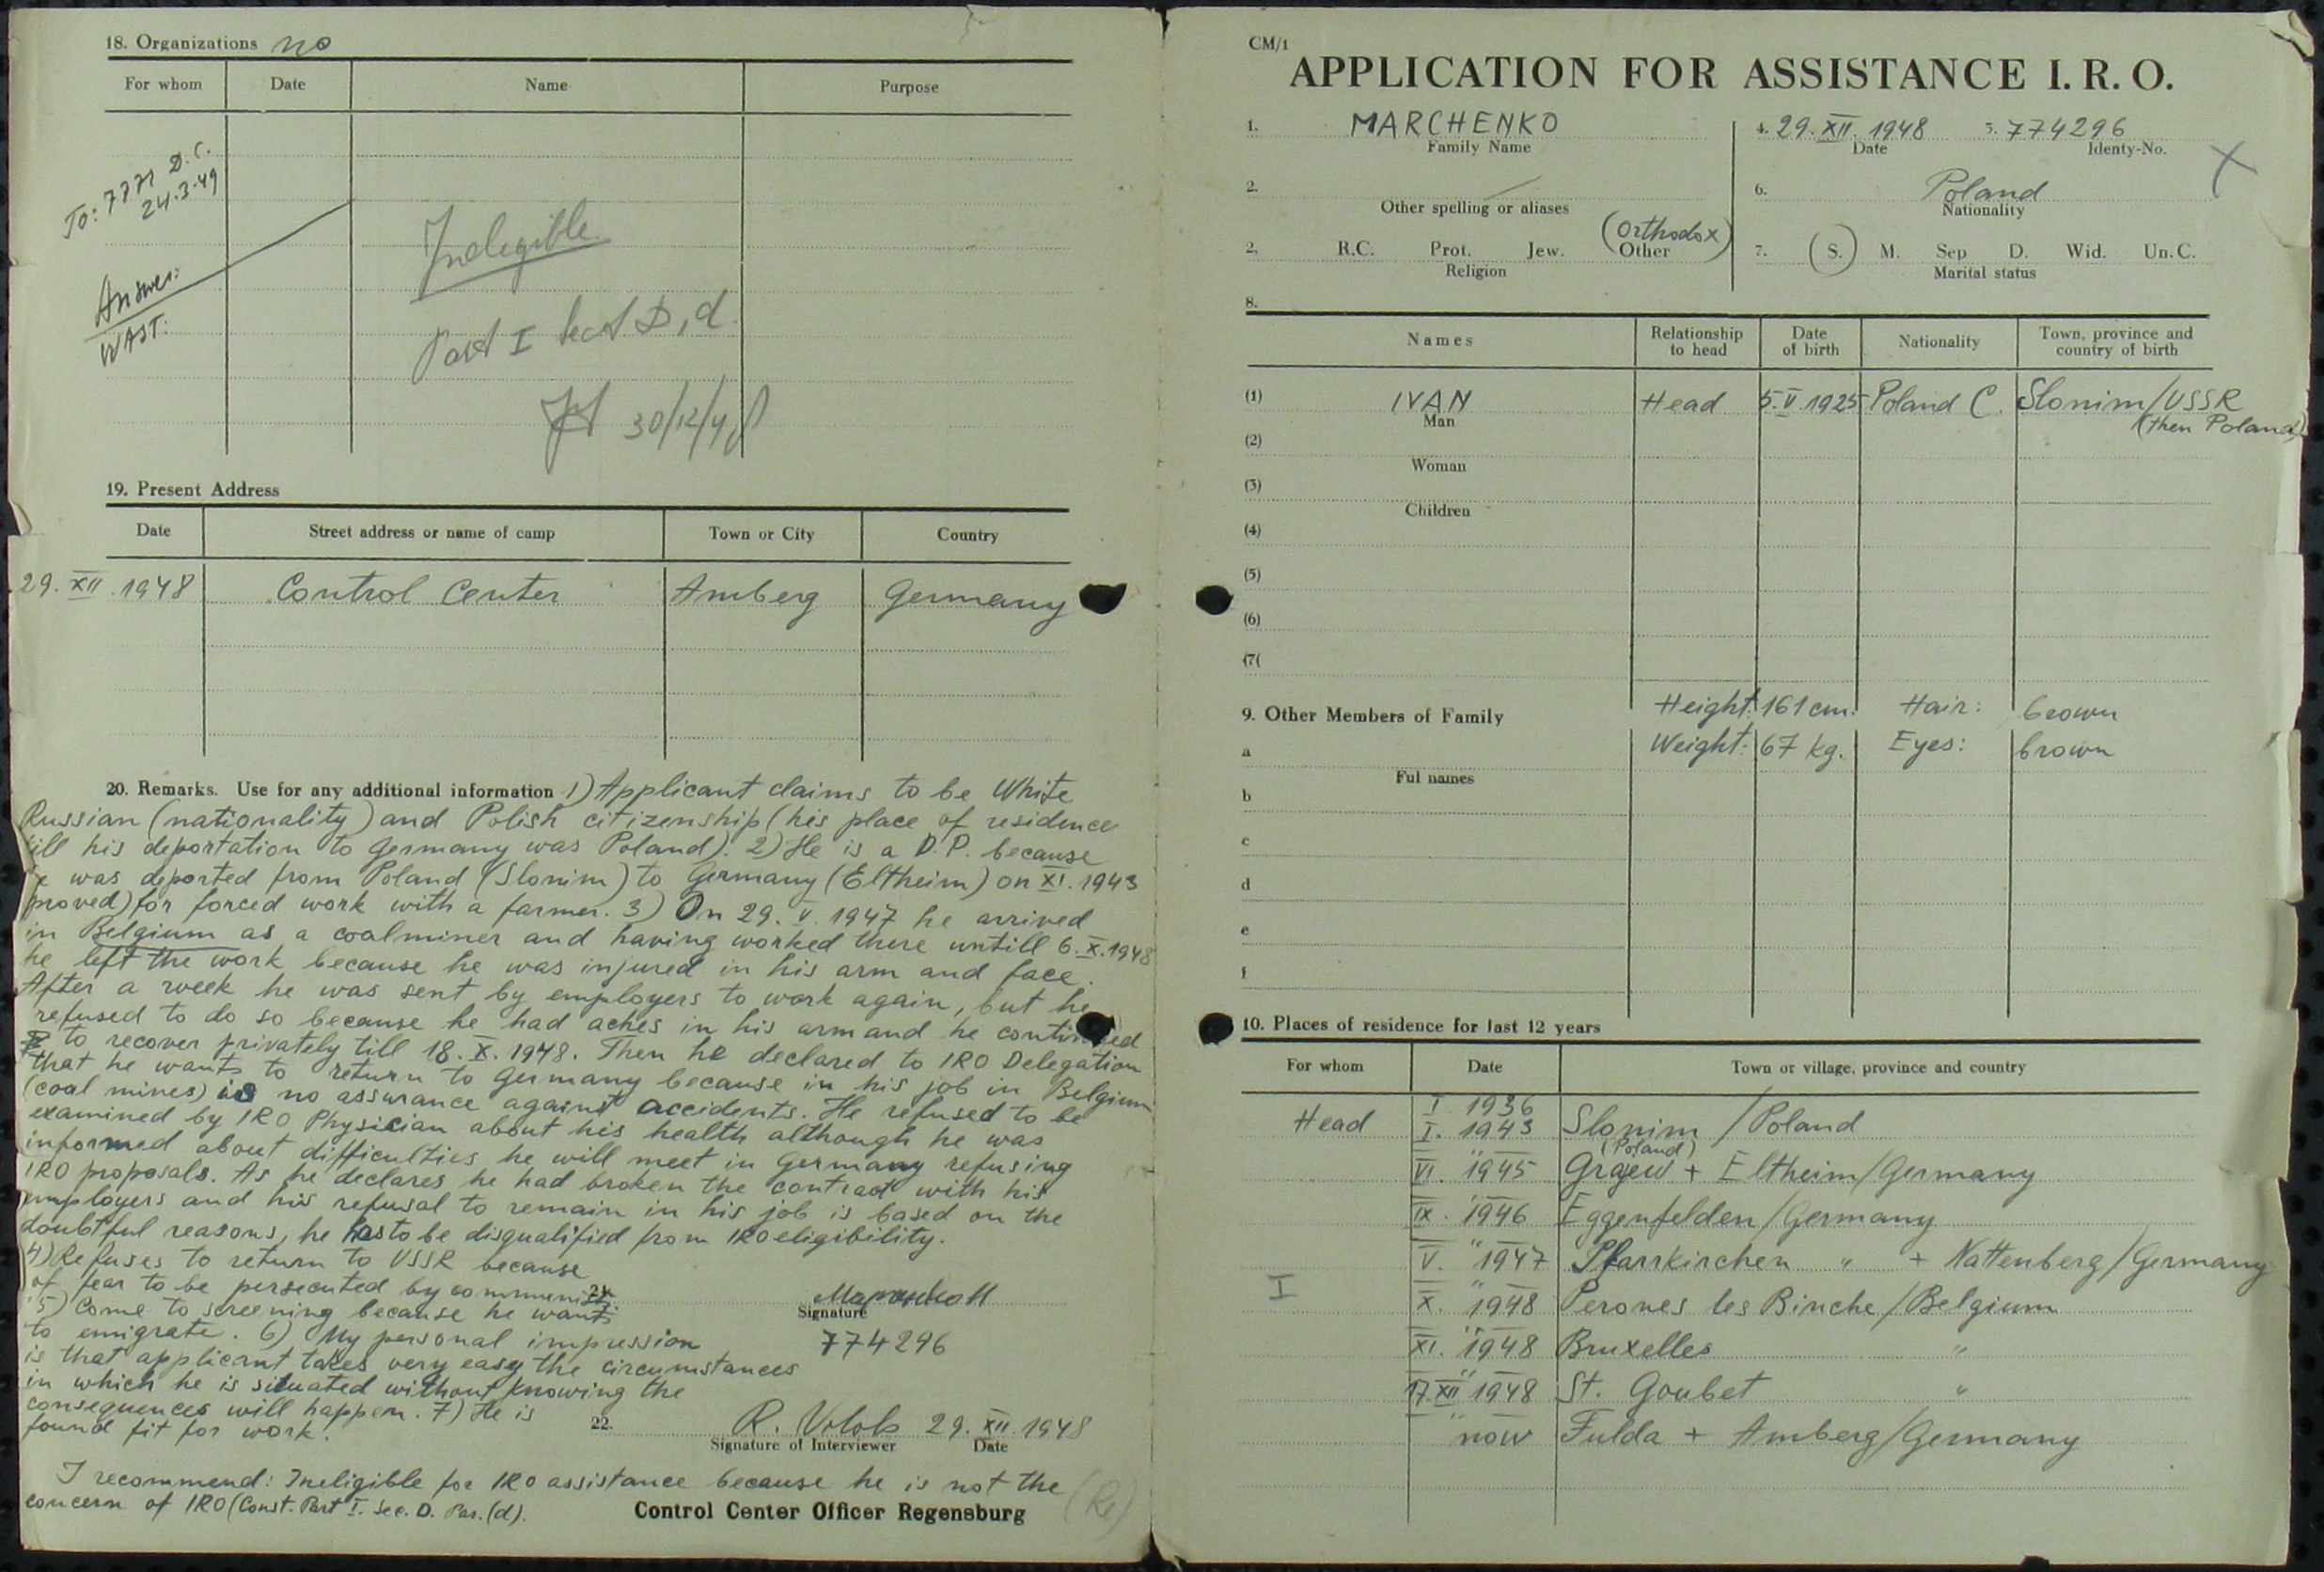 18. Organizations no
For whom Date Name Purpose
To: 7771 D.C.
24.3.49
Answer:
WAST:
Inelegible
Part I Sect D, d.
30/12/48
19. Present Address
Date Street address or name of camp Town or City Country
29. XII. 1948 Control Center Amberg Germany
20. Remarks. Use for any additional information 1) Applicant claims to be White
Russian (nationality) and Polish citizenship (his place of residence
till his deportation to Germany was Poland). 2) He is a D.P. because
he was deported from Poland (Slonim) to Germany (Eltheim) on XI. 1943
(proved) for forced work with a farmer. 3) On 29. V. 1947 he arrived
in Belgium as a coalminer and having worked there untill 6. X. 1948
he left the work because he was injured in his arm and face.
After a week he was sent by employers to work again, but he
refused to do so because he had aches in his arm and he continued
to recover privately till 18. X. 1948. Then he declared to IRO Delegation
that he wants to return to Germany because in his job in Belgium
(coal mines) is no assurance against accidents. He refused to be
examined by IRO Physician about his health although he was
informed about difficulties he will meet in Germany refusing
IRO proposals. As he declares he had broken the contract with his
employers and his refusal to remain in his job is based on the
doubtful reasons, he has to be disqualified from IRO eligibility.
4) Refuses to return to USSR because
of fear to be persecuted by communists.
5) Come to screening because he wants
to emigrate. 6) My personal impression
is that applicant takes very easy the circumstances
in which he is situated without knowing the
consequences will happen. 7) He is
found fit for work.
21.
Signature
774296
22. R. Vilob 29. XII. 1948
Signature of Interviewer Date
I recommend: Ineligible for IRO assistance because he is not the
concern of IRO (Const. Part I. Sec. D. Par. (d).
Control Center Officer Regensburg
(Re)
CM/1
APPLICATION FOR ASSISTANCE I.R.O.
1. MARCHENKO
Family Name
4. 29. XII. 1948 5. 774296
Date Identy-No.
2.
Other spelling or aliases
6. Poland
Nationality
X
(Orthodox)
2, R.C. Prot. Jew. Other
Religion
7. (S.) M. Sep D. Wid. Un.C.
Marital status
8.
Names Relationship to head Date of birth Nationality Town, province and country of birth
(1) IVAN Head 5. V. 1925 Poland C. Slonim/USSR
Man (then Poland)
(2)
Woman
(3)
Children
(4)
(5)
(6)
(7(
9. Other Members of Family Height: 161 cm. Hair: brown
a Weight: 67 kg. Eyes: brown
Ful names
b
c
d
e
f
10. Places of residence for last 12 years
For whom Date Town or village, province and country
I. 1936
Head I. 1943 Slonim / Poland
(Poland)
VI. 1945 Grajew + Eltheim/Germany
IX. 1946 Eggenfelden/Germany
V. 1947 Pfarrkirchen " + Nattenberg/Germany
I X. 1948 Perones les Binche/Belgium
XI. 1948 Bruxelles "
17. XII 1948 St. Goubet "
now Fulda + Amberg/Germany